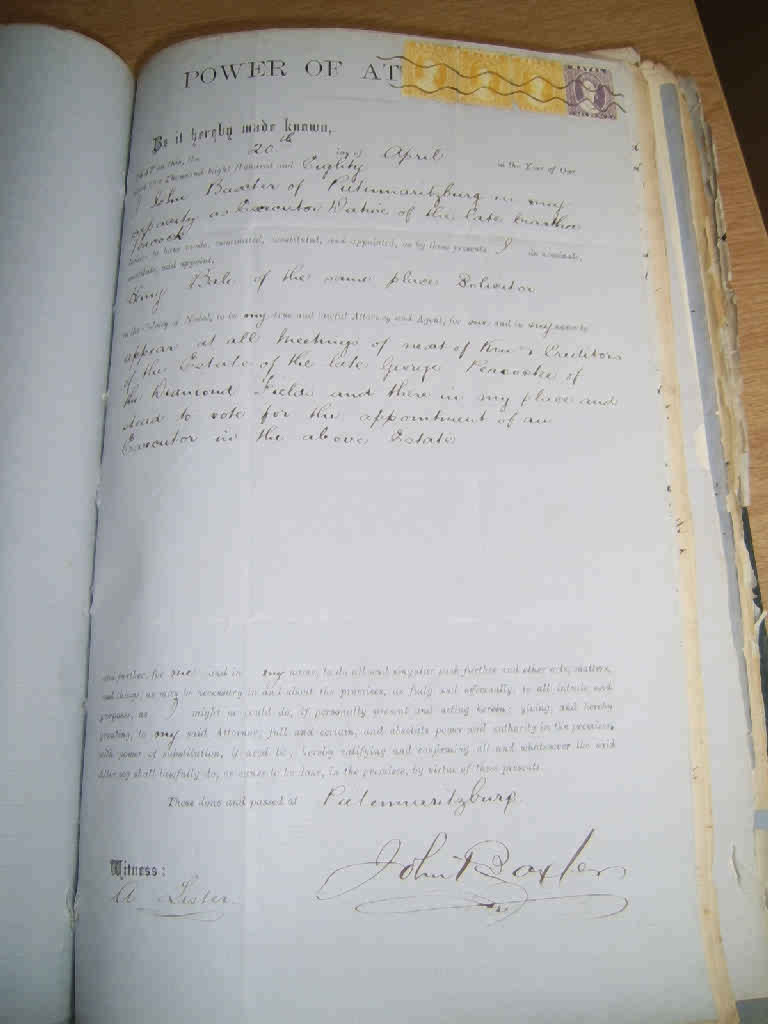 POWER OF AT
Be it hereby made known,
That on this, the 20th day of April in the Year of Our
Lord One Thousand Eight Hundred and Eighty
I John Baxter of Pietermaritzburg in my
capacity as Executor Dative of the late Martha
Peacock
to have made, nominated, constituted, and appointed, as by these presents I do nominate,
constitute, and appoint,
Bale of the same place Solicitor
in the Colony of Natal, to be my true and lawful Attorney and Agent, for me and in my name to
appear at all meetings of next of Kin & Creditors
of the Estate of the late George Peacocke of
the Diamond Fields and there in my place and
stead to vote for the appointment of an
Executor in the above Estate
and further, for me and in my name, to do all and singular such further and other acts, matters,
and things, as may be necessary in and about the premises, as fully and effectually, to all intents and
purposes, as I might or could do, if personally present and acting herein; giving, and hereby
granting, to my said Attorney, full and certain, and absolute power and authority in the premises,
with power of substitution, if need be, hereby ratifying and confirming all and whatsoever the said
Attorney shall lawfully do, or cause to be done, in the premises, by virtue of these presents.
Thus done and passed at Pietermaritzburg
John Baxter
Witness:
A Lister